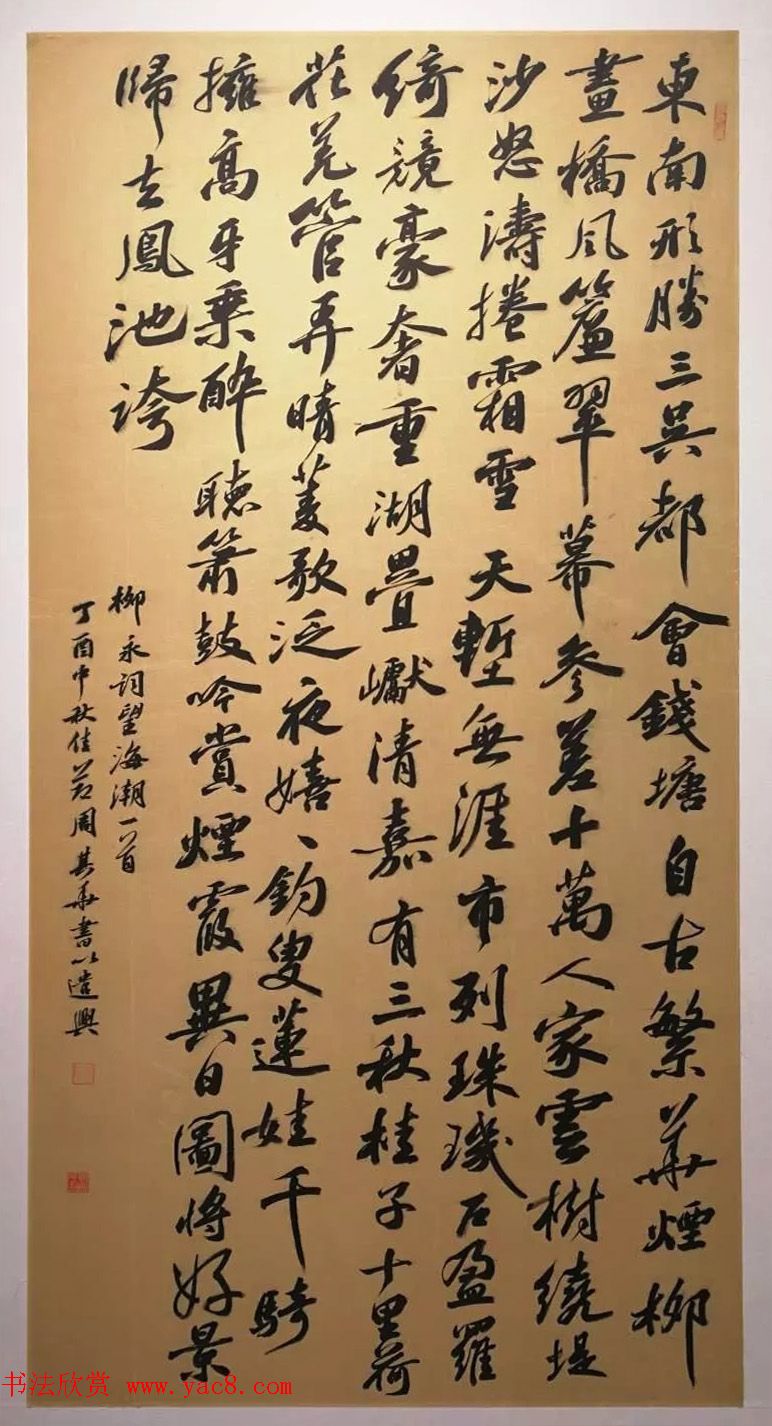 東南形勝三吳都會錢塘自古繁華煙柳
畫橋風簾翠幕參差十萬人家雲樹繞堤
沙怒濤捲霜雪天塹無涯市列珠璣户盈羅
綺競豪奢重湖疊巘清嘉有三秋桂子十里荷
花羌管弄晴菱歌泛夜嬉、釣叟蓮娃千騎
擁高牙乘醉聽簫鼓吟賞煙霞異日圖將好景
歸去鳳池誇
柳永詞望海潮一首
丁酉中秋佳節周其華書以遣興
书法欣赏 www.yac8.com